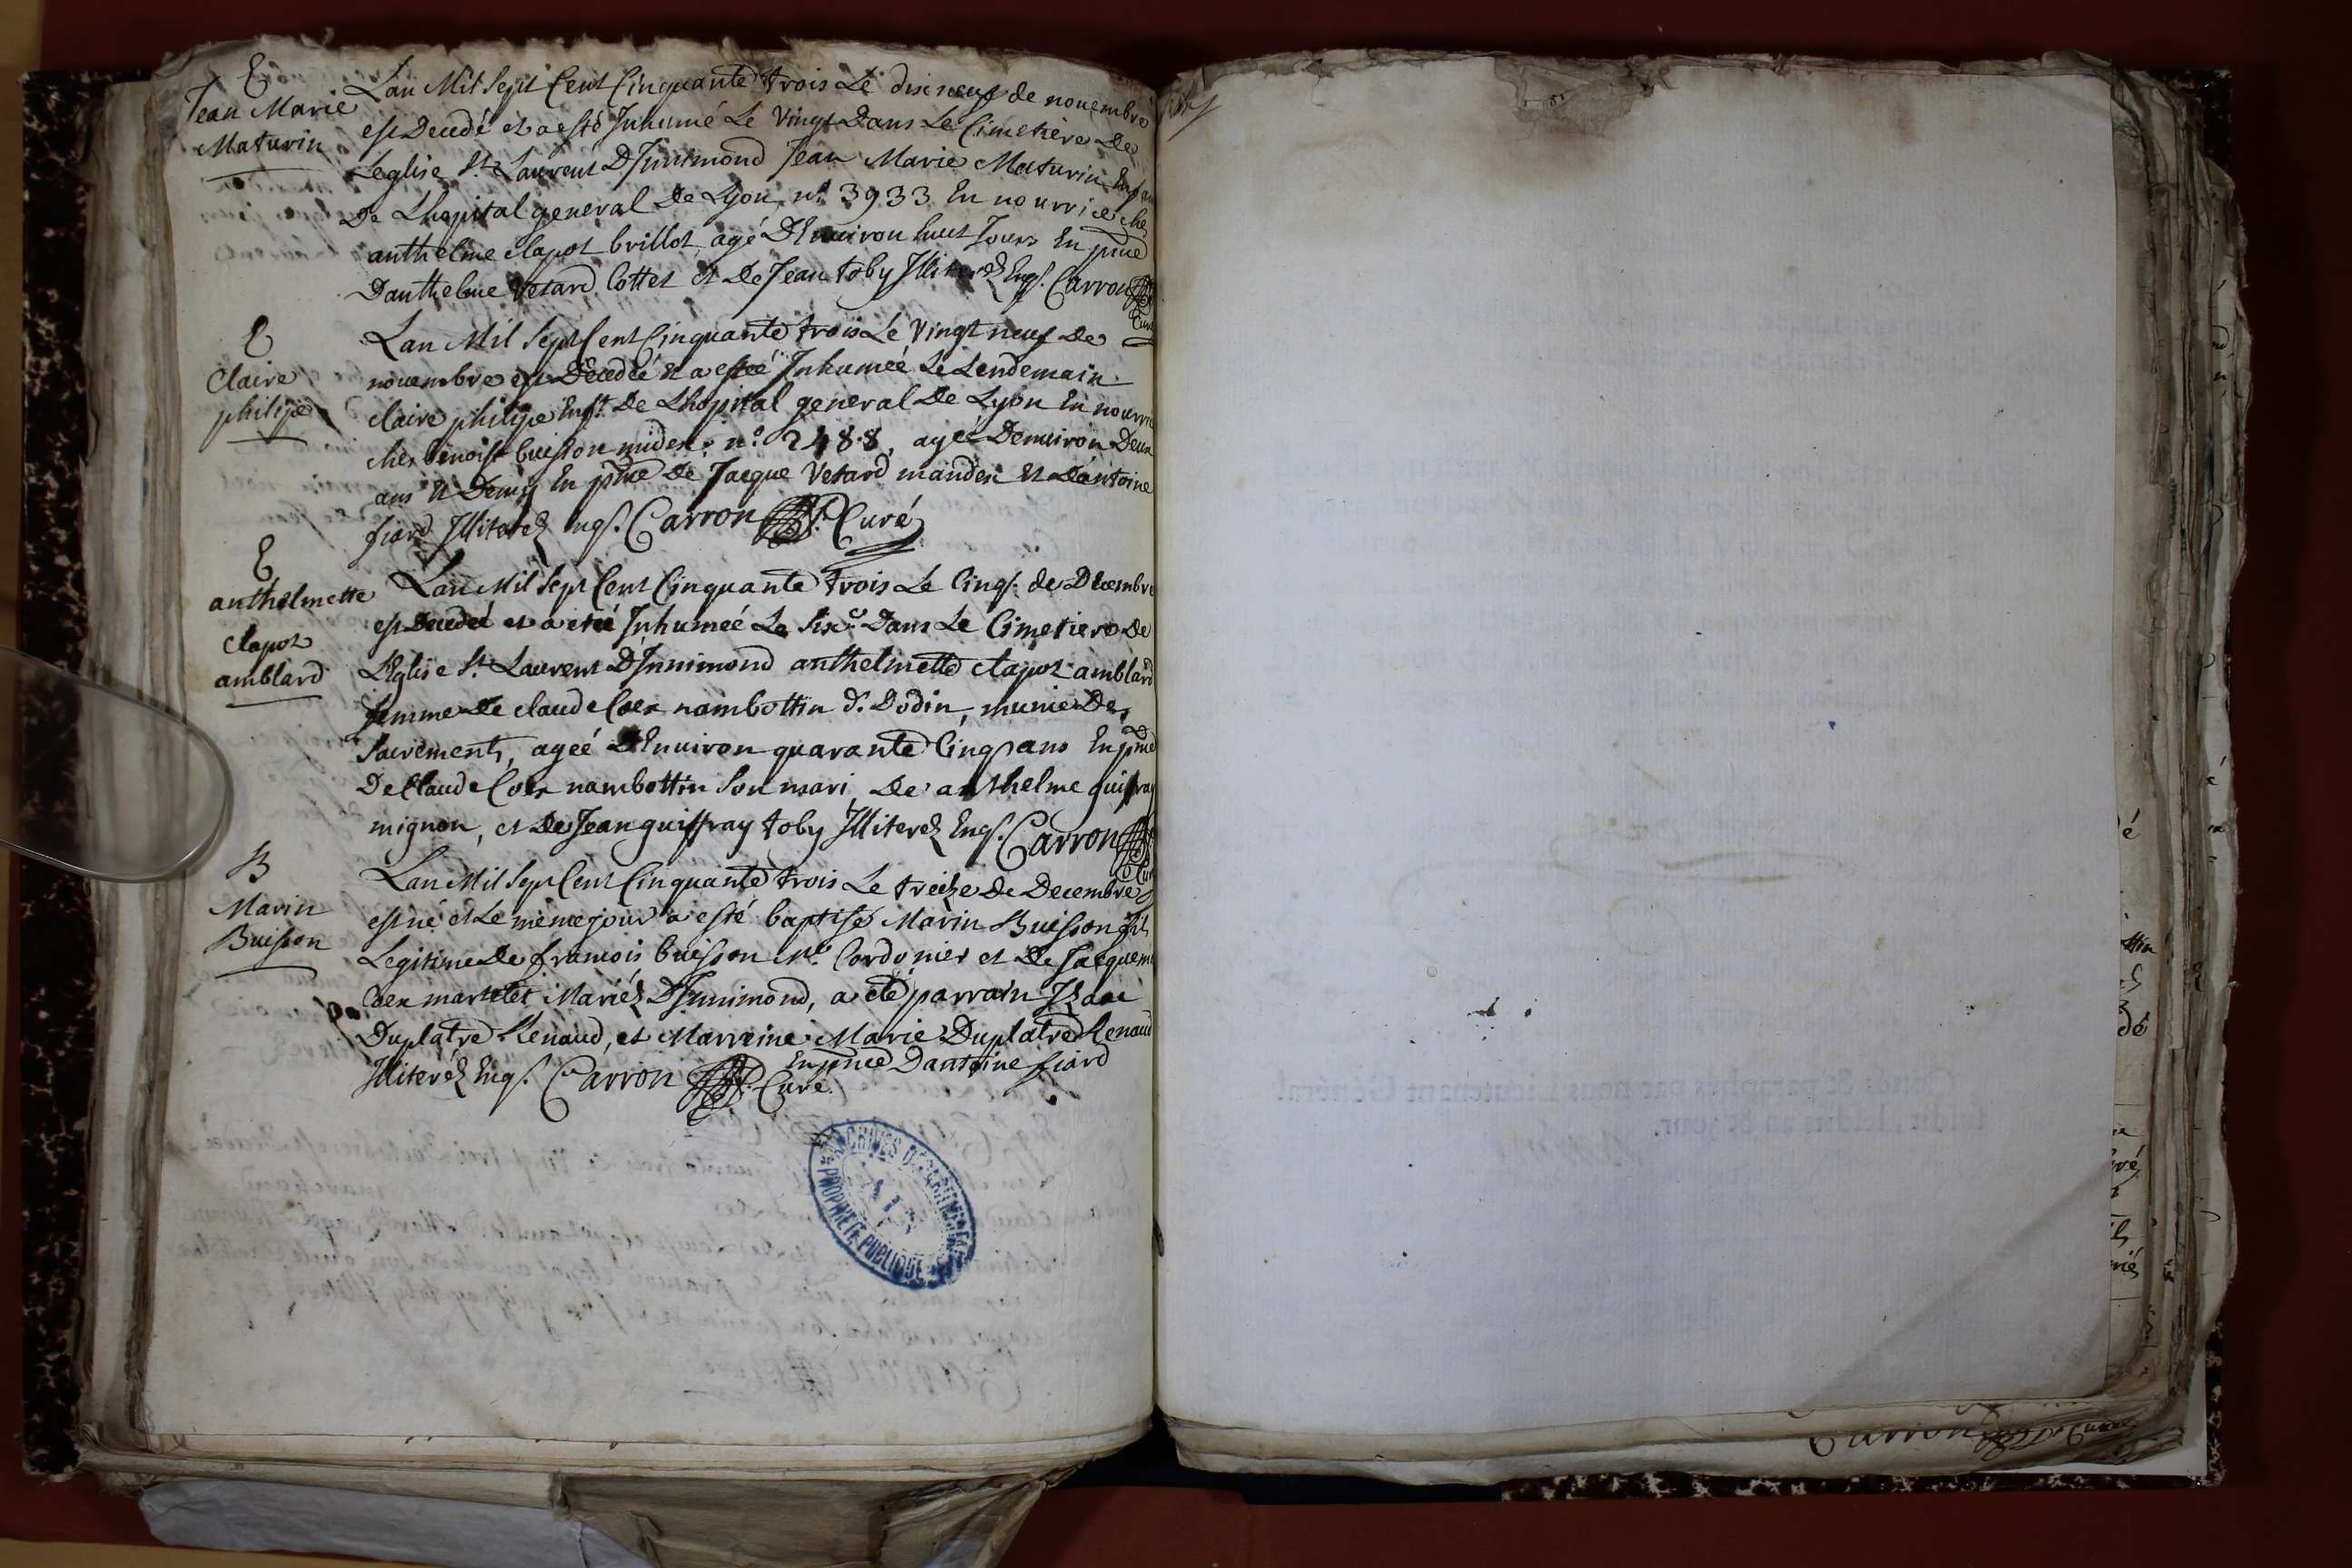 E
Jean Marie
Maturin
Lan Mil Sept Cent Cinquante trois Le dix neuf de nouembre
est Decedé et a esté Inhumé Le Vingt Dans Le Cimetiere De
Leglise St Laurent DInnimond Jean Marie Maturin Enfan
De Lhopital general De Lyon, n.º 3933 En nourrice che
anthelme clapot brillot, agé DEnuiron huit Jours En pnce
Danthelme Vetard Cottet et De Jean toby Illiterez Enqs. Carron
Curé
E
Claire
philipe
Lan Mil Sept Cent Cinquante trois Le Vingt neuf De
nouembre est Decedeé et a esteé Inhumeé Le Lendemain
claire philipe Enft De Lhopital general De Lyon En nourri
ches benoist buisson midex, n.º 2488, ageé Denuiron Deux
ans et Demy En pnce De Jacque Vetard mandex et Dantoine
fiard Illiterez Enqs. Carron Curé
E
anthelmette
clapot
amblard
Lan Mil Sept Cent Cinquante trois Le Cinq. de Decembre
est Decedeé et a eteé Inhumeé Le Six.e Dans Le Cimetiere De
LEglise St Laurent DInnimond anthelmette clapot amblard
femme De claude Coex nambottin d. Dodin, munie Des
Sacrements, ageé DEnuiron quarante Cinq ans En pnce
De Claude Coex nambottin Son mari, De anthelme guiffray
mignon, et De Jean guiffray toby Illiterez Enqs. Carron
Cur
B
Marin
Buisson
Lan Mil Sept Cent Cinquante trois Le treize De Decembre
est né et Le meme jour a esté baptisé Marin Buisson fils
Legitime De francois buisson Me Cordonier et De Jacquem
Coex martelet Mariéz DInnimond, a eté parrain Isaac
Duplatre Renaud, et Marreine Marie Duplatre Renaud
En pnce Dantoine fiard
Illiteréz Enqs. Carron Curé
ARCHIVES DEPARTEMENTALES
AIN
PROPRIETE PUBLIQUE
Carron Curé